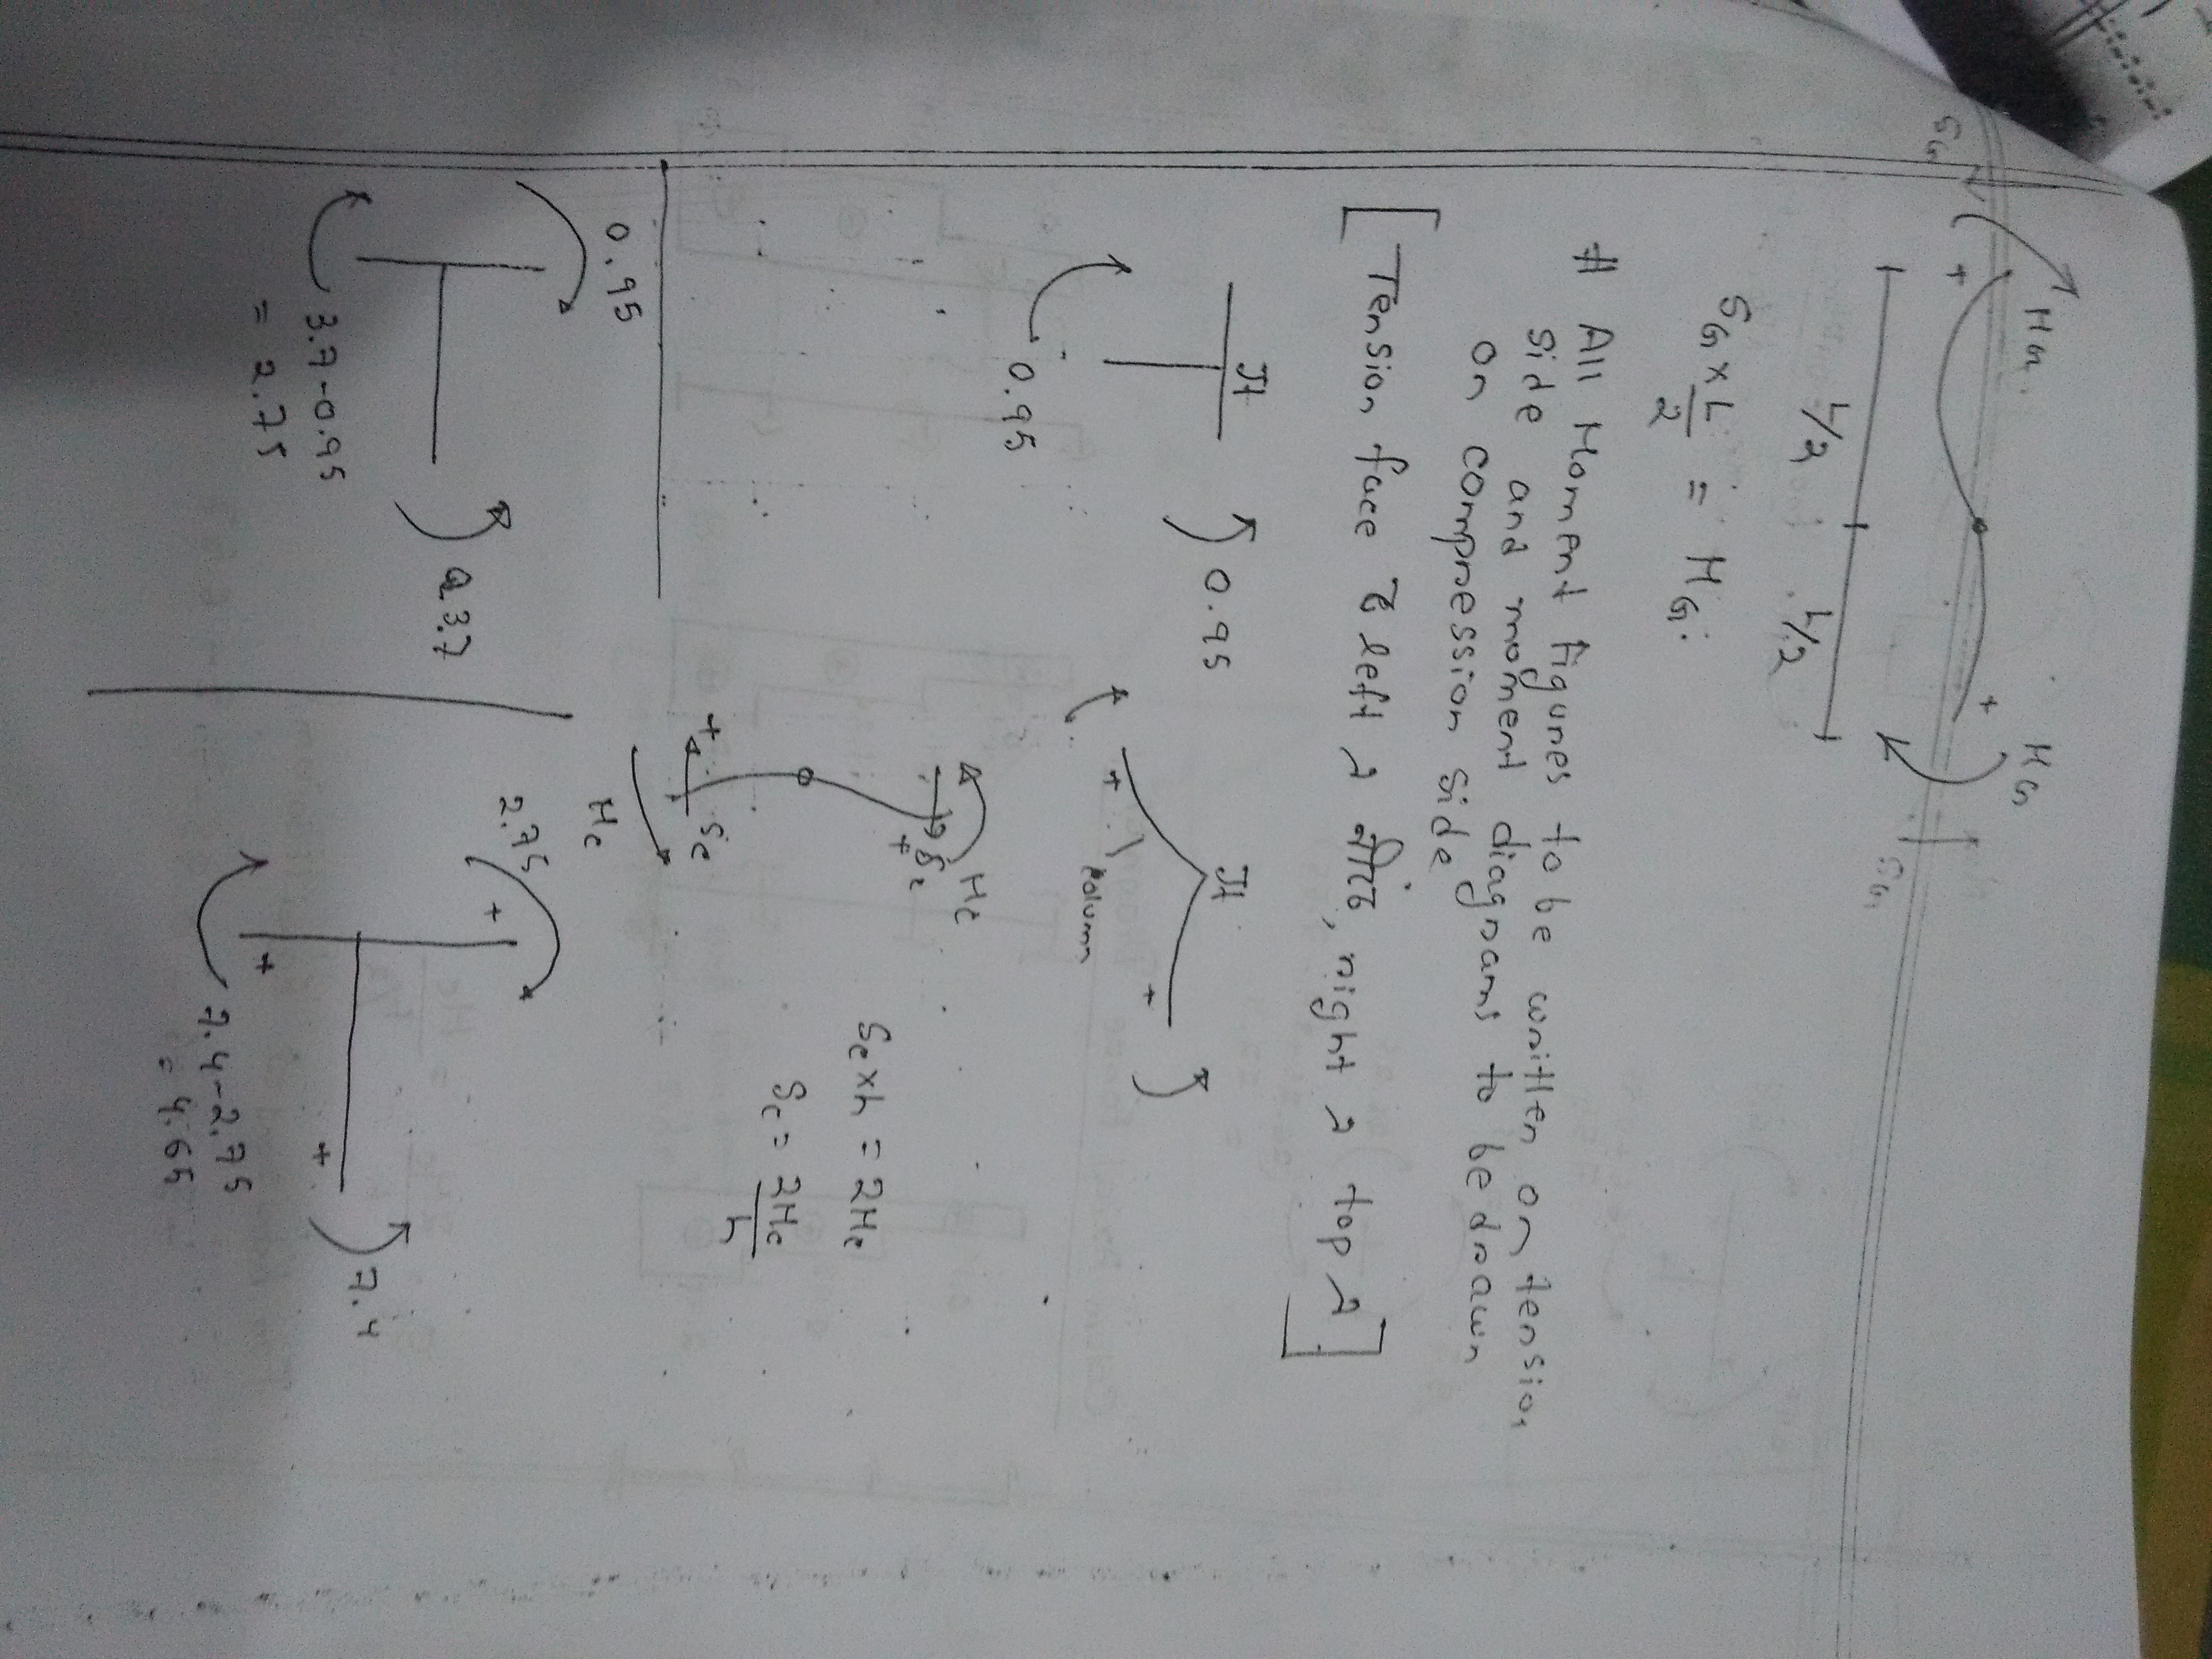 SG
MG
MG
+
+
SG
L/2
L/2
SG × L/2 = MG
# All Moment figures to be written on tension
side and moment diagrams to be drawn
on compression side
[Tension face left नीचे, right top]
Jt
0.95
0.95
Jt
+
+
Mc
Sc
+
Sc
+
Mc
Sc × h = 2Mc
Sc = 2Mc/h
0.95
3.7
3.7-0.95
= 2.75
2.75
+
+
+
7.4
7.4-2.75
= 4.65